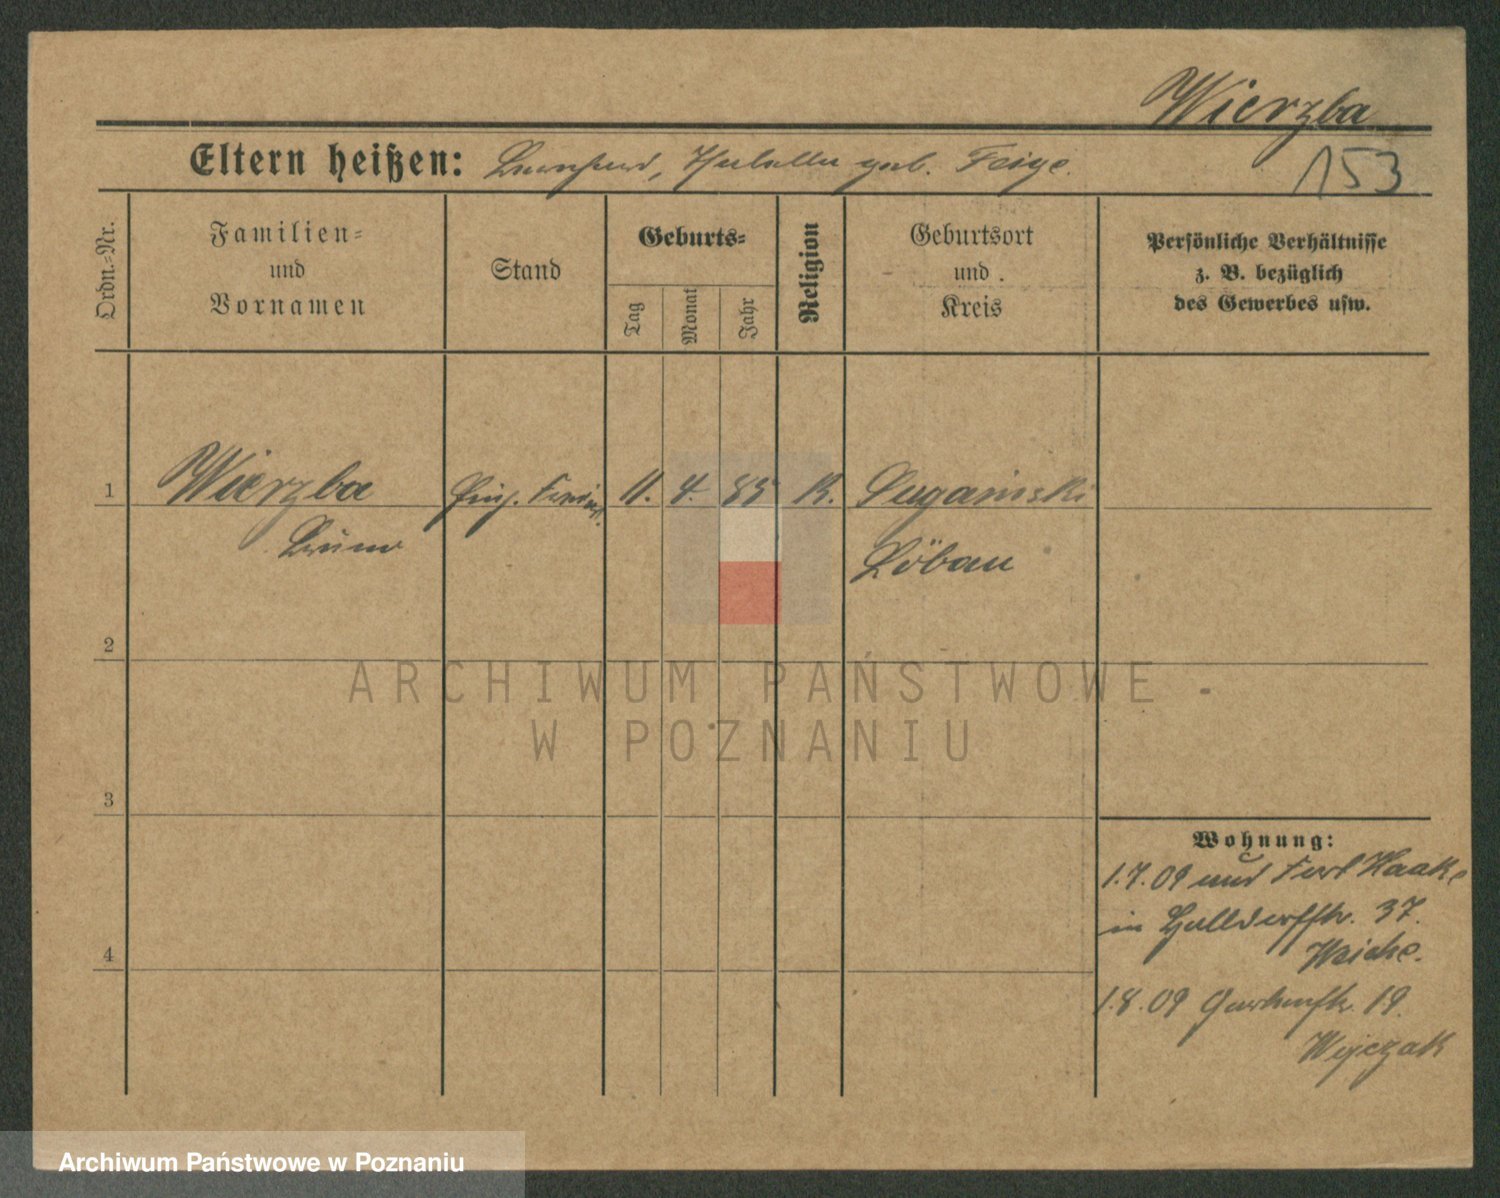 Wierzba
Eltern heißen: geb. Feige.
153
Ordn.-Nr.
Familien-
und
Vornamen
Stand
Geburts-
Tag
Monat
Jahr
Religion
Geburtsort
und
Kreis
Persönliche Verhältnisse
z. B. bezüglich
des Gewerbes usw.
1 Wierzba 11. 4. 83 K.
Bruno
Löbau
2
ARCHIWUM PAŃSTWOWE
W POZNANIU
3
Wohnung:
1.7.09 und Fort Haake
in 37.
4
1.8.09 Gartenstr. 19.
Wyczak
Archiwum Państwowe w Poznaniu